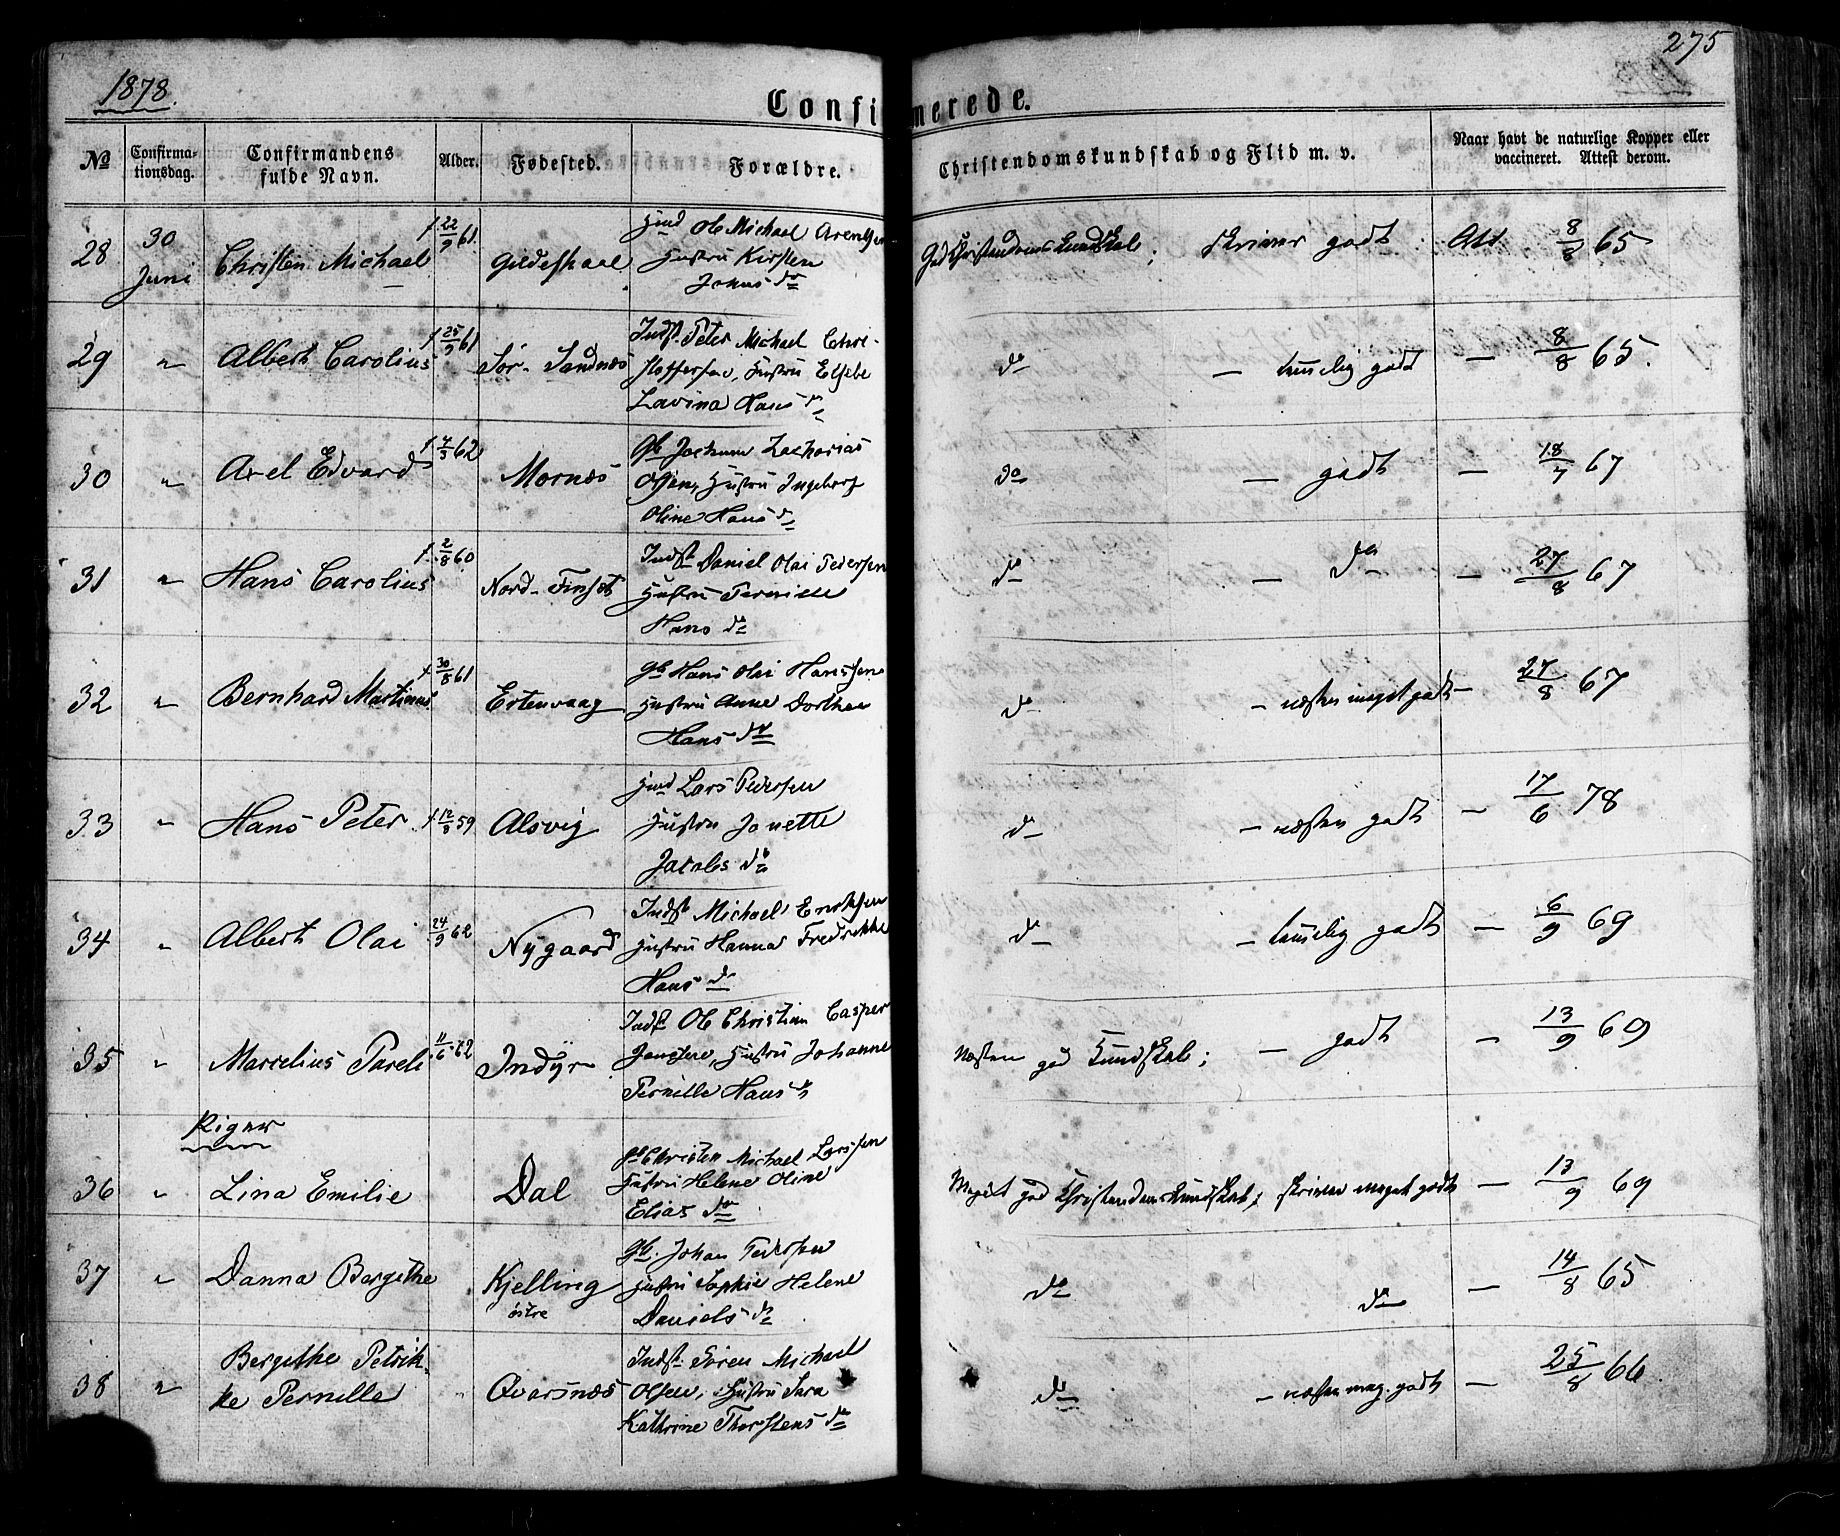 1878.
275
Confirmerede.
No
Confirma-
tionsdag.
Confirmandens
fulde Navn.
Alder.
Fødested.
Forældre.
Christendomskundskab og Flid m. v.
Naar havt de naturlige Kopper eller
vaccineret. Attest derom.
28
30
Juni
Christen Michael
f. 22/9 61.
Gildeskaal
Ole Michael Arentsen
Hustru Kirsten
Johns dr
God Christendomskundskab; skriver godt
Att 8/8 65
29 "
Albert Carolius
f. 25/9 61
Sør-Sandnæs
Indst. Peter Michael Chri-
stoffersen, Hustru Elsebe
Lavina Hans dr
do — temlig godt — 8/8 65.
30 "
Axel Edvard
f. 4/3 62
Mornæs
Gb. Jochum Zacharias
Olsen, Hustru Ingeborg
Oline Hans dr
do — godt — 18/7 67
31 "
Hans Carolius
f. 2/8 60
Nord-Finset
Indst. Daniel Olai Pedersen
Hustru Pernille
Hans dr
do — do — 27/8 67
32 "
Bernhard Martinus
f. 30/8 61
Ertenvaag
Gb. Hans Olai Hanssen
Hustru Anne Dorthea
Hans dr
do — næsten meget godt — 27/8 67
33 "
Hans Peter
f. 12/8 59
Alsvig
Lars Pedersen
Hustru Jonette
Jacobs dr
do — næsten godt — 17/6 78
34 "
Albert Olai
24/9 62
Nygaard
Indst. Michael Eriksen
Hustru Hanna Fredrikke
Hans dr
do — temlig godt — 6/9 69
35 "
Marselius Pareli
11/6 62
Indyr
Indst. Ole Christian Casper
Jensen, Hustru Johanne
Pernille Hans dr
Næsten god Kundskab; — godt — 13/9 69
Piger
36 "
Lina Emilie
Dal
Christen Michael Larssen
Hustru Helene Oline
Elias dr
Meget god Christendomskundskab; skriver meget godt — 13/9 69
37 "
Danna Bergithe
Kjelling
østre
Gb. Johan Pedersen
Hustru Sophie Helene
Daniels dr
do do — 14/8 65
38 "
Bergithe Petrik-
ke Pernille
Qvarsnæs
Indst. Søren Michael
Olsen, Hustru Sara
Kathrine Thorstens dr
do — næsten meg. godt — 25/8 66